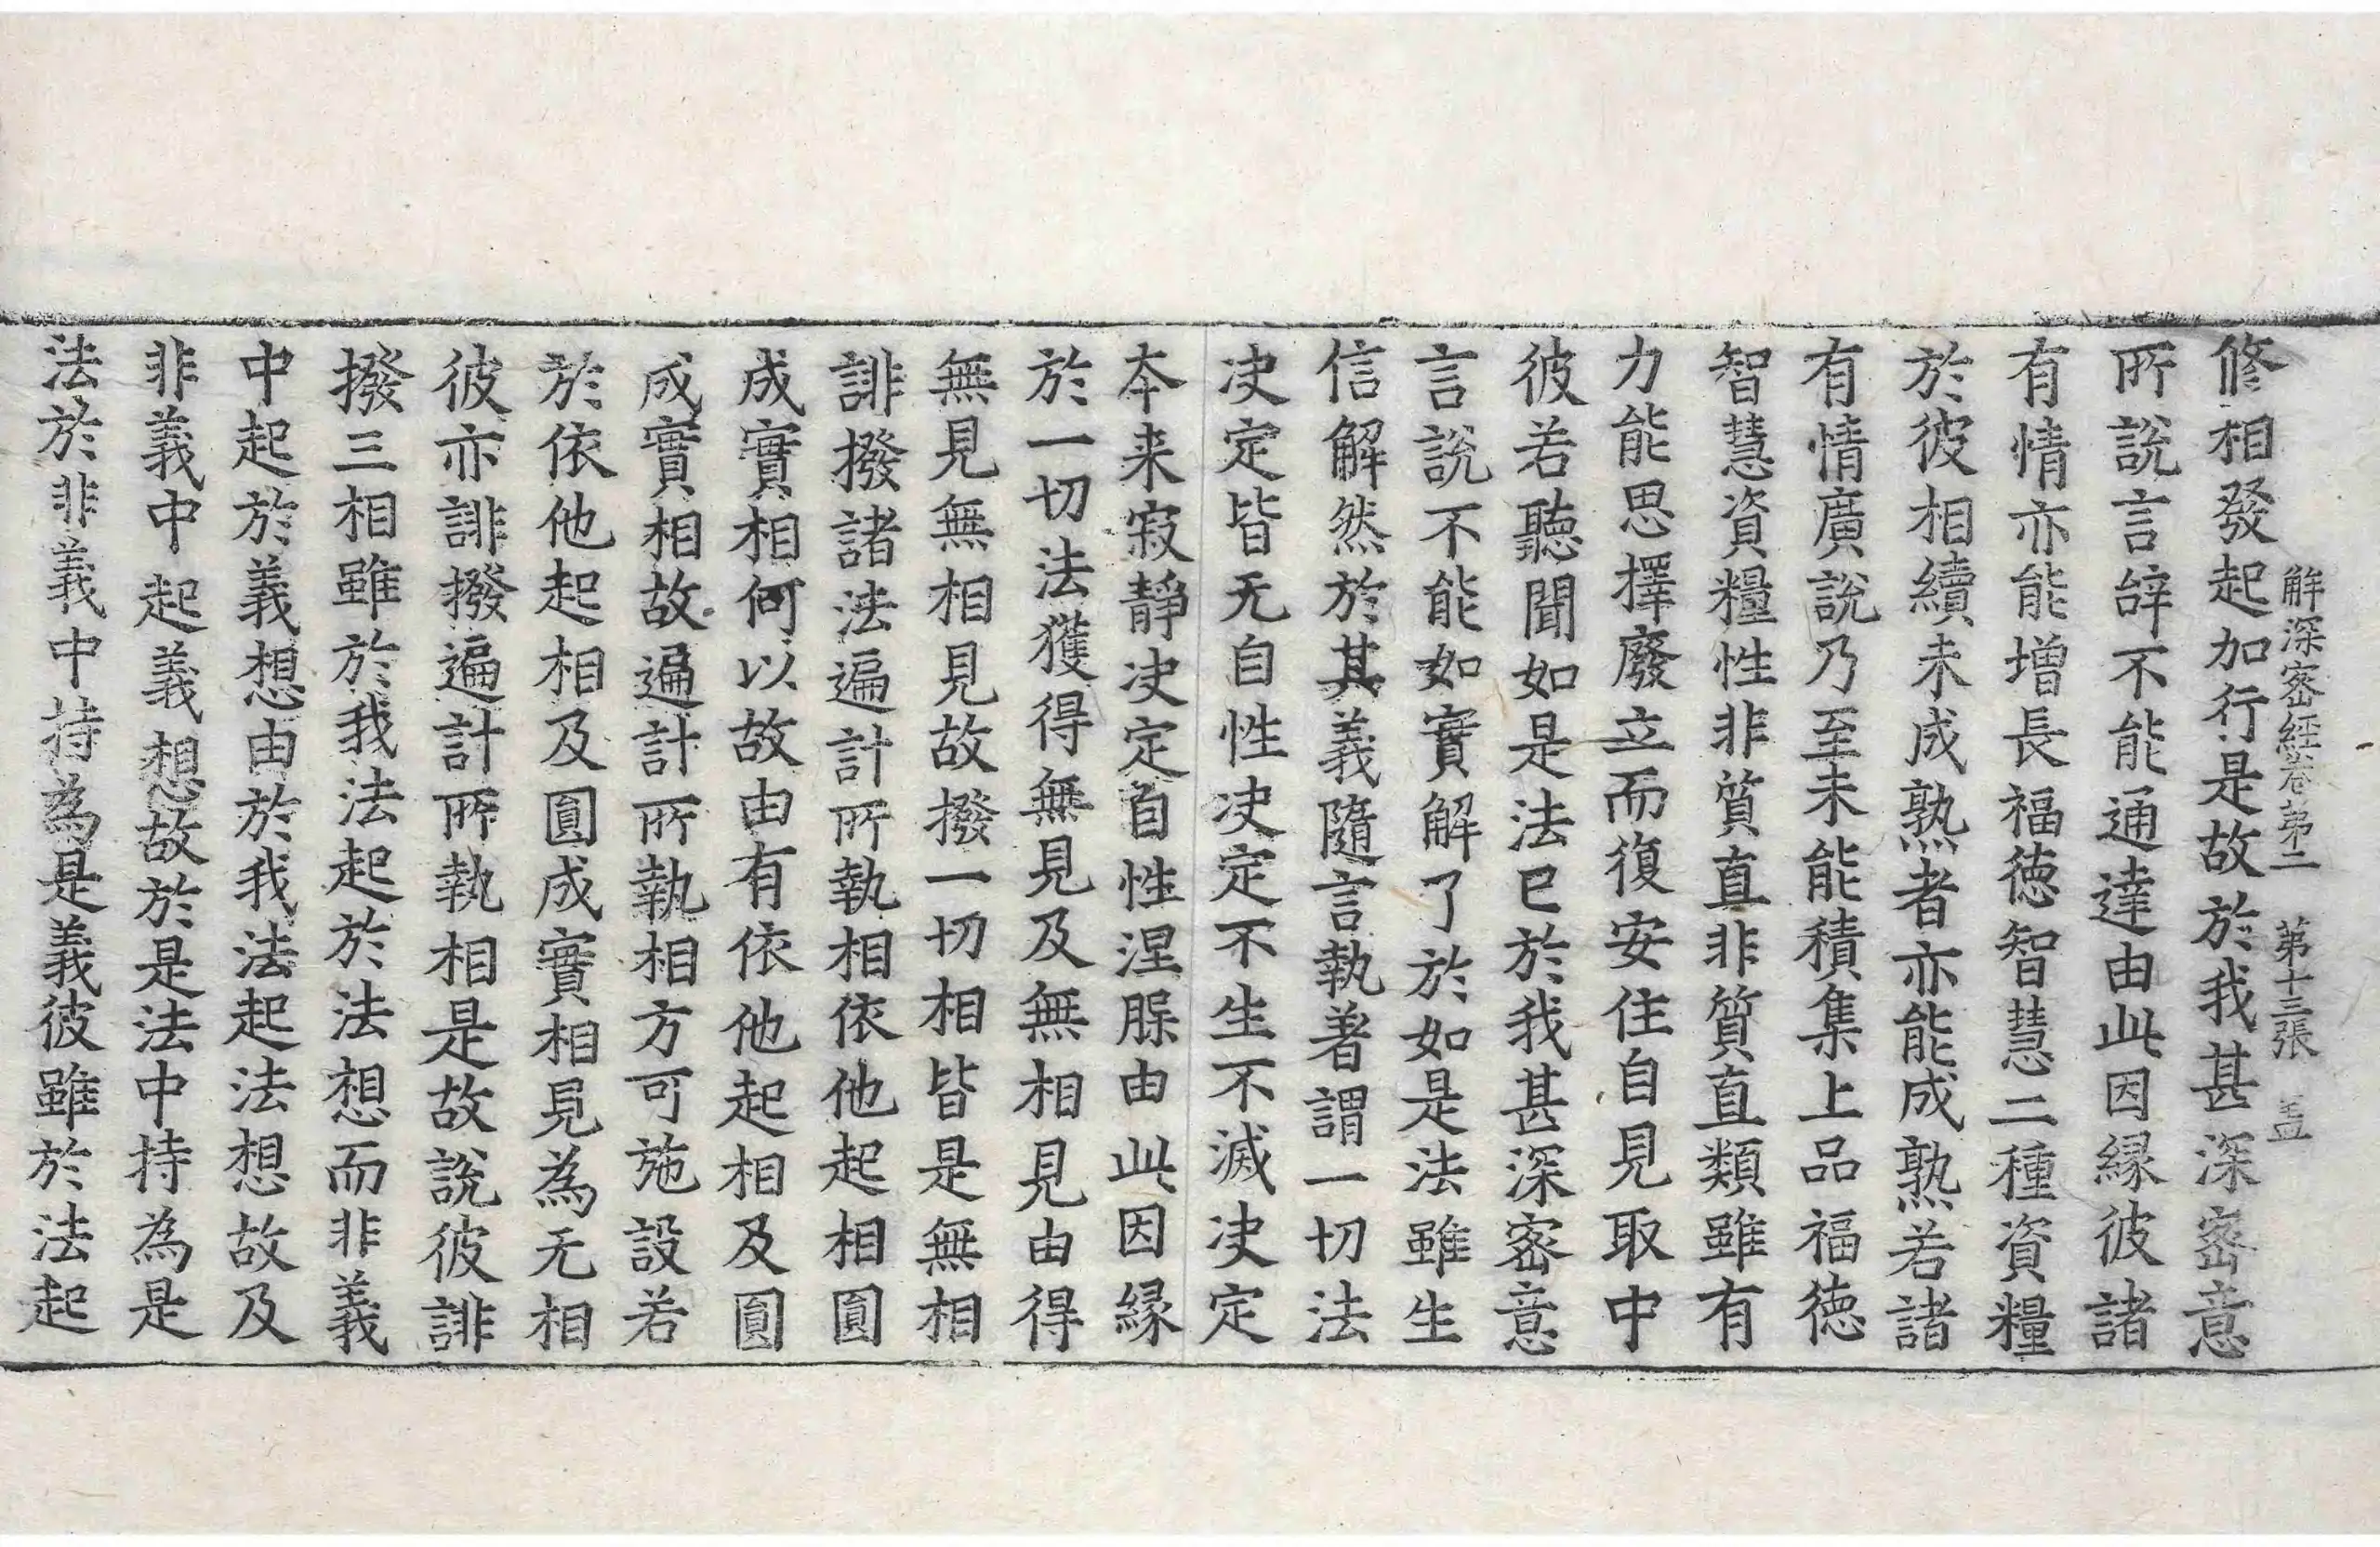 解深密經卷第二　第十三張　盖
修相發起加行是故於我甚深密意
所說言辞不能通達由此因縁彼諸
有情亦能増長福徳智慧二種資糧
於彼相續未成熟者亦能成熟若諸
有情廣說乃至未能積集上品福徳
智慧資糧性非質直非質直類雖有
力能思擇廢立而復安住自見取中
彼若聽聞如是法已於我甚深密意
言說不能如實解了於如是法雖生
信解然於其義隨言執著謂一切法
决定皆无自性决定不生不滅决定
本来寂靜决定自性涅槃由此因縁
於一切法獲得無見及無相見由得
無見無相見故撥一切相皆是無相
誹撥諸法遍計所執相依他起相圓
成實相何以故由有依他起相及圓
成實相故遍計所執相方可施設若
於依他起相及圓成實相見為无相
彼亦誹撥遍計所執相是故說彼誹
撥三相雖於我法起於法想而非義
中起於義想由於我法起法想故及
非義中起義想故於是法中持為是
法於非義中持為是義彼雖於法起